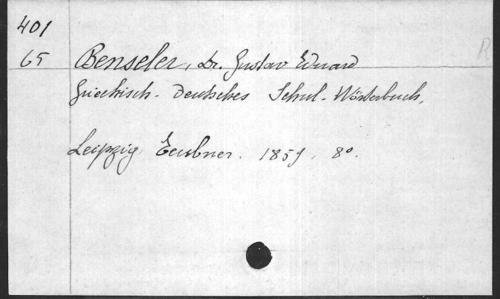 401
65 Benseler, Dr. Gustav Eduard
Griechisch-Deutsches Schul-Wörterbuch.
Leipzig Teubner. 1859. 8°.
R